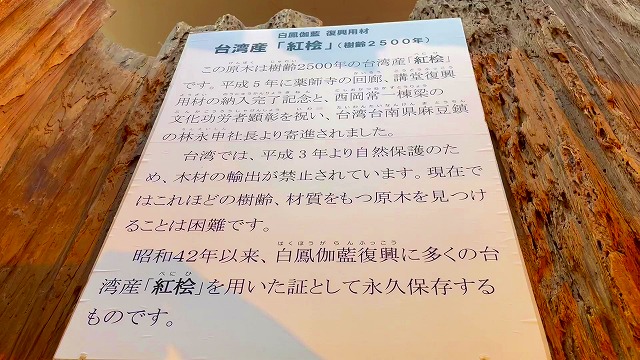 白鳳伽藍 復興用材
台湾産「紅桧」(樹齢2500年)
この原木は樹齢2500年の台湾産「紅桧」
です。平成5年に薬師寺の回廊、講堂復興
用材の納入完了記念と、西岡常一棟梁の
文化功労者顕彰を祝い、台湾台南県麻豆鎮
の林永申社長より寄進されました。
台湾では、平成3年より自然保護のた
め、木材の輸出が禁止されています。現在で
はこれほどの樹齢、材質をもつ原木を見つけ
ることは困難です。
はくほうがらんふっこう
昭和42年以来、白鳳伽藍復興に多くの台
べにひ
湾産「紅桧」を用いた証として永久保存する
ものです。